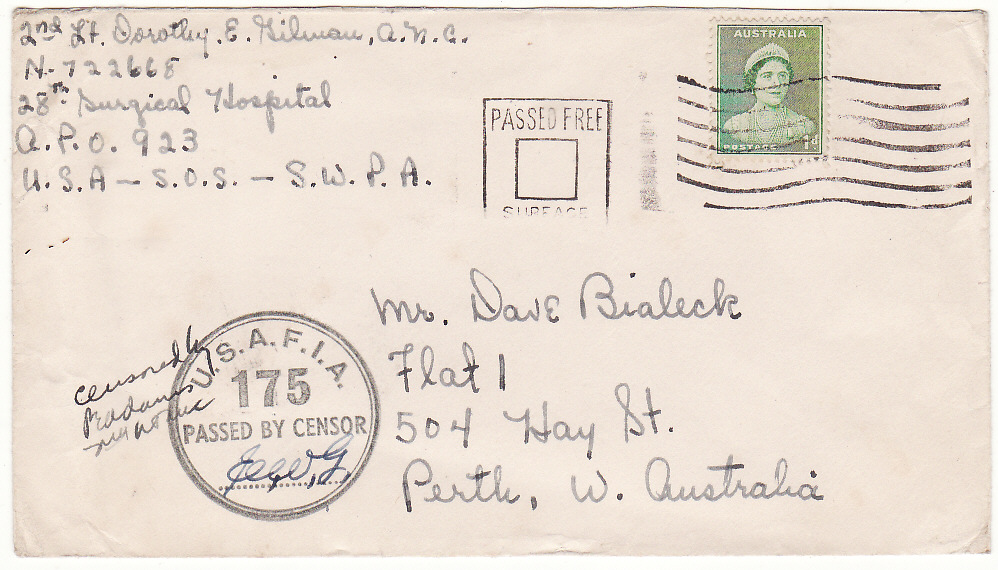 2nd Lt. Dorothy. E. Gilman, A.N.C.
N-722668
28th Surgical Hospital
A.P.O. 923
U.S.A — S.O.S. — S.W.P.A.
PASSED FREE
SURFACE
AUSTRALIA
POSTAGE 1D
Mr. Dave Bialeck
Flat 1
504 Hay St.
Perth, W. Australia
censored by
U.S.A.F.I.A.
175
PASSED BY CENSOR